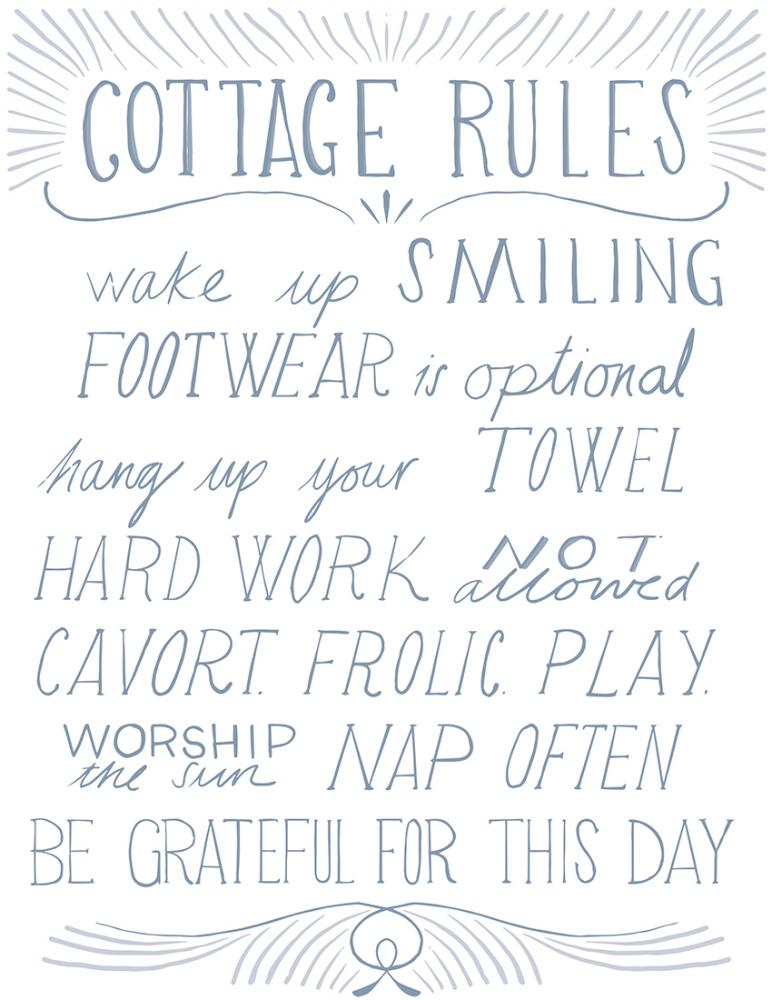 COTTAGE RULES
wake up SMILING
FOOTWEAR is optional
hang up your TOWEL
HARD WORK NOT allowed
CAVORT. FROLIC. PLAY.
WORSHIP the sun NAP OFTEN
BE GRATEFUL FOR THIS DAY